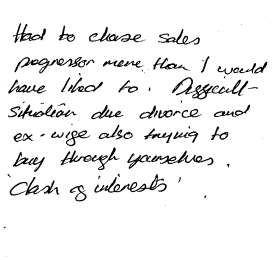 Had to chase sales
progressor more than I would
have liked to. Difficult
situation due divorce and
ex-wife also trying to
buy through yourselves.
'Clash of interests'